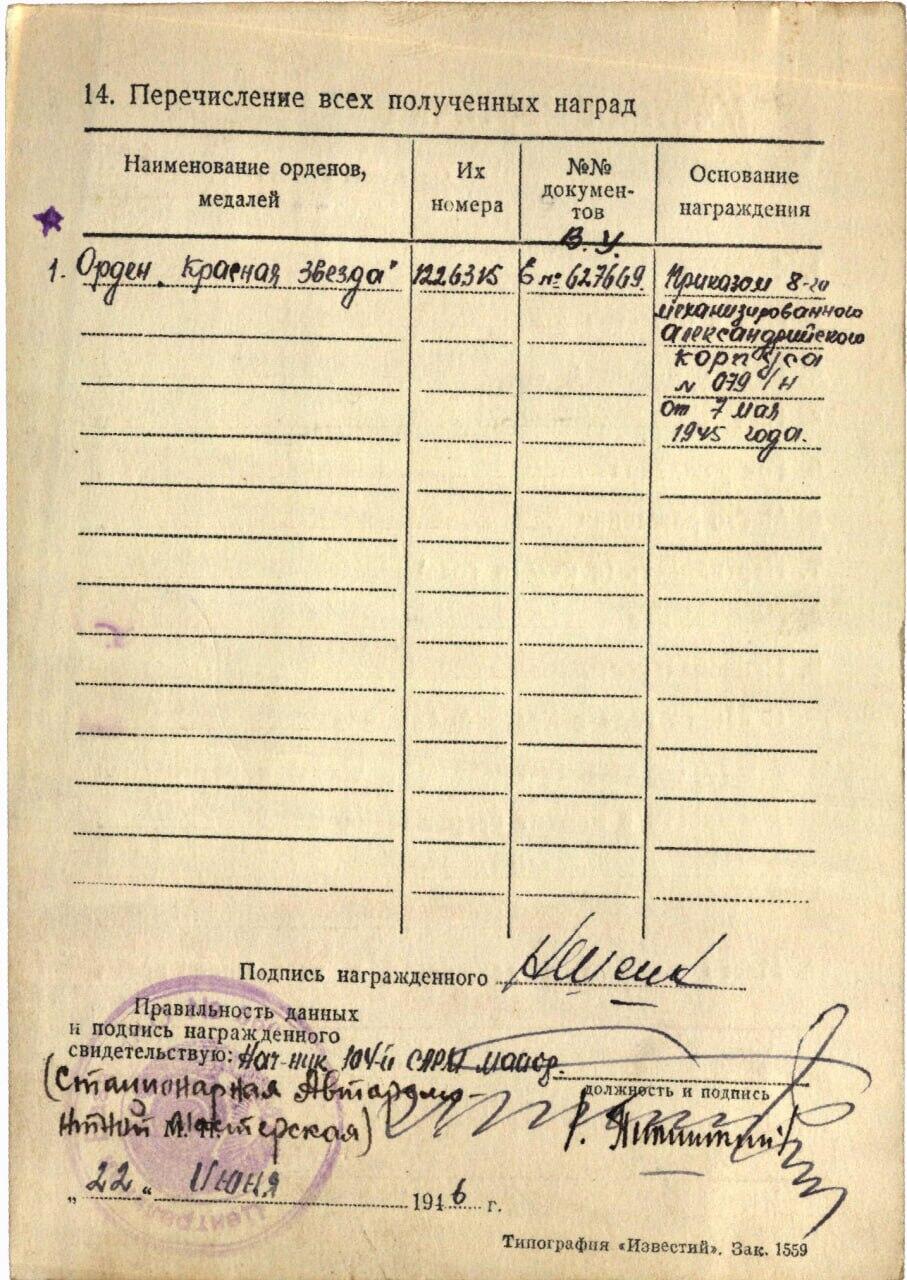 14. Перечисление всех полученных наград
Наименование орденов, медалей
Их номера
№№ докумен-тов
Основание награждения
В. У.
1. Орден „Красная Звезда" 1226315 Б № 627669. Приказом 8-го
механизированного
Александрийского
корпуса
№ 079/н
от 7 мая
1945 года.
Подпись награжденного
Правильность данных
и подпись награжденного
свидетельствую: Нач-ник 104й САРМ майор.
должность и подпись
(Стационарная Авторемо-
нтной М. П. Мастерская)
„ 22 " Июня 1946 г.
Типография «Известий». Зак. 1559